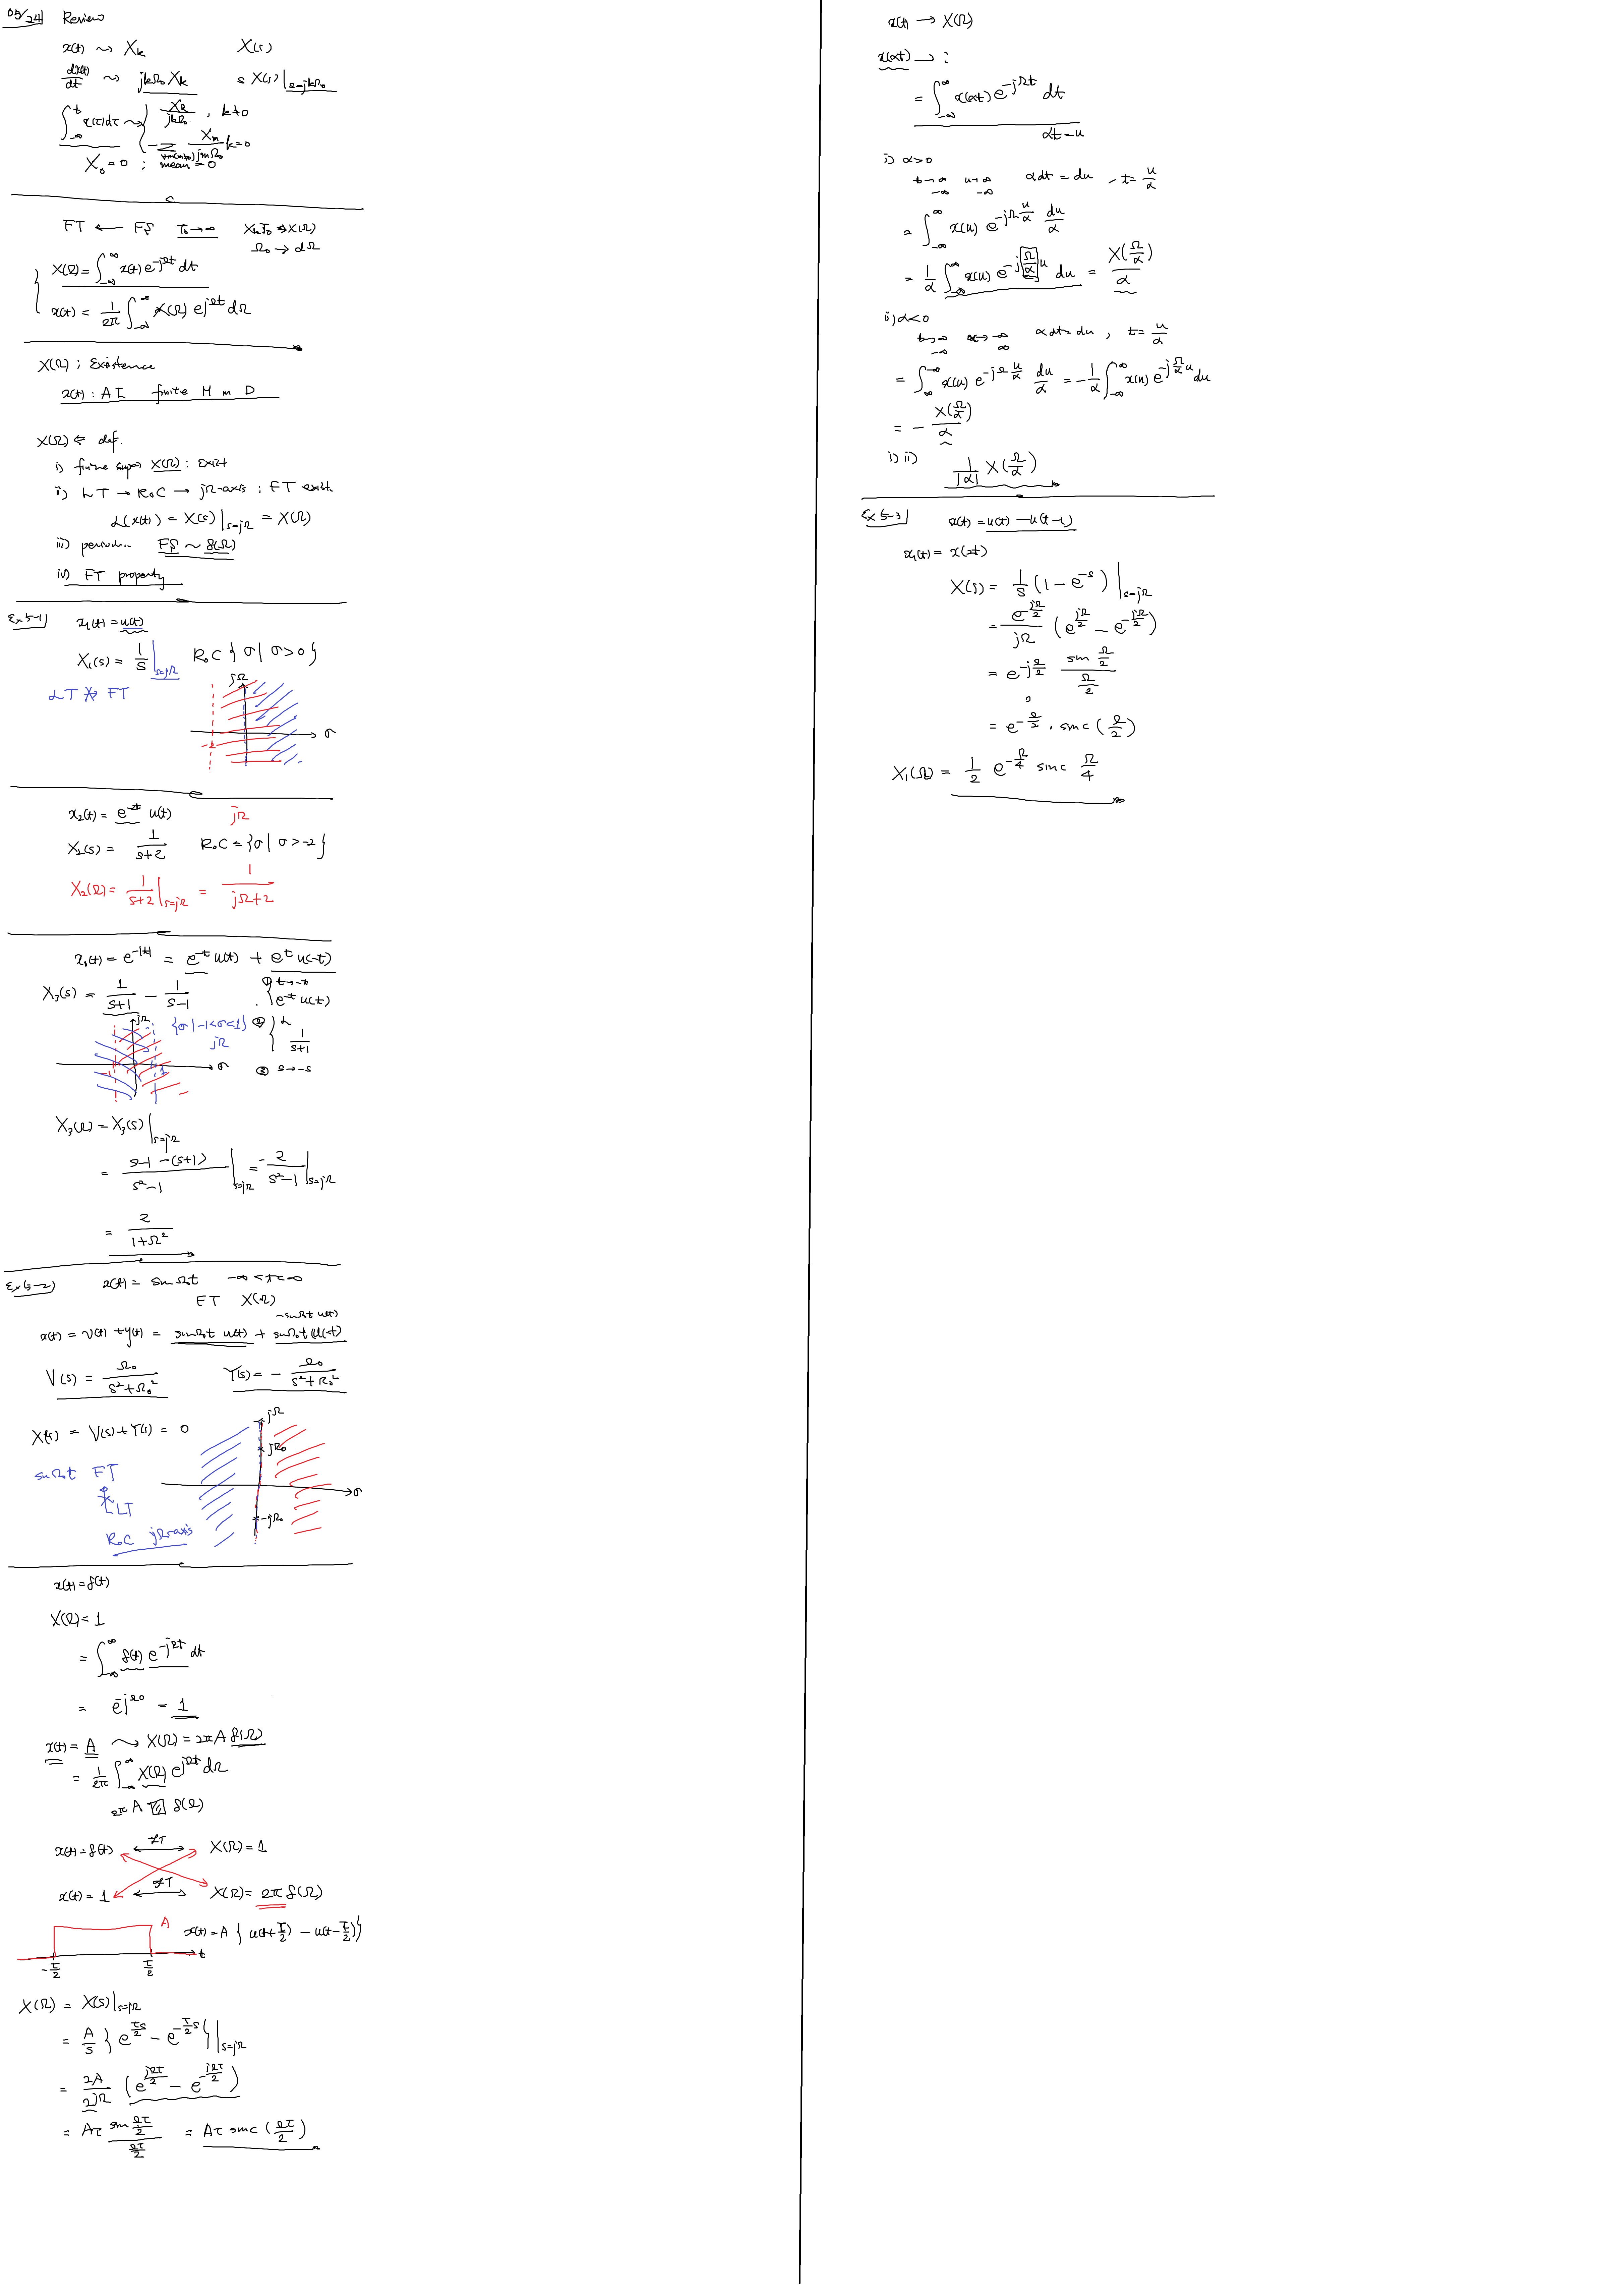 05/24 Review
x(t) ⤳ X_k   X(s)
dx(t)/dt ⤳ jkΩ₀ X_k   s X(s)|_{s=jkΩ₀}
∫_{-∞}^{t} x(τ)dτ ⤳ { X_k/(jkΩ₀) , k≠0
-Σ_{∀m(m≠0)} X_m/(jmΩ₀) k=0
X₀ = 0 ; mean = 0
FT ← FS   T₀→∞   X_k T₀ → X(Ω)
Ω₀ → dΩ
{ X(Ω) = ∫_{-∞}^{∞} x(t) e^{-jΩt} dt
x(t) = 1/2π ∫_{-∞}^{∞} X(Ω) e^{jΩt} dΩ
X(Ω) ; Existence
x(t) : AI   finite M m D
X(Ω) ⇐ def.
i) finite supp X(Ω) : Exist
ii) LT → RoC → jΩ-axis ; FT exist
L(x(t)) = X(s)|_{s=jΩ} = X(Ω)
iii) FS ~ δ(Ω)
iv) FT property
Ex 5-1) x₁(t) = u(t)
X₁(s) = 1/s |_{s=jΩ}   RoC { σ | σ>0 }
LT ⇏ FT
jΩ
σ
-2
x₂(t) = e^{-2t} u(t)   jΩ
X₂(s) = 1/(s+2)   RoC = {σ | σ>-2}
X₂(Ω) = 1/(s+2) |_{s=jΩ} = 1/(jΩ+2)
x₃(t) = e^{-|t|} = e^{-t} u(t) + e^{t} u(-t)
X₃(s) = 1/(s+1) - 1/(s-1)
① t→-t
e^{-t} u(t)
jΩ   {σ | -1<σ<1}   ② L
jΩ   1/(s+1)
-1   1   σ   ③ s→-s
X₃(Ω) = X₃(s)|_{s=jΩ}
= (s-1-(s+1))/(s²-1) |_{s=jΩ} = -2/(s²-1) |_{s=jΩ}
= 2/(1+Ω²)
Ex 5-2) x(t) = sinΩ₀t   -∞<t<∞
FT   X(Ω)
-sinΩ₀t u(t)
x(t) = v(t) + y(t) = sinΩ₀t u(t) + sinΩ₀t u(-t)
V(s) = Ω₀/(s²+Ω₀²)   Y(s) = - Ω₀/(s²+Ω₀²)
X(s) = V(s) + Y(s) = 0
jΩ
jΩ₀
sinΩ₀t FT
σ
LT
-jΩ₀
RoC jΩ-axis
x(t) = δ(t)
X(Ω) = 1
= ∫_{-∞}^{∞} δ(t) e^{-jΩt} dt
= e^{-jΩ0} = 1
x(t) = A ⤳ X(Ω) = 2πA δ(Ω)
= 1/2π ∫_{-∞}^{∞} X(Ω) e^{jΩt} dΩ
2πA δ(Ω)
x(t) = δ(t) ⟷ FT X(Ω) = 1
x(t) = 1 ⟷ FT X(Ω) = 2π δ(Ω)
A   x(t) = A { u(t+τ/2) - u(t-τ/2) }
-τ/2   τ/2   t
X(Ω) = X(s)|_{s=jΩ}
= A/s { e^{τs/2} - e^{-τs/2} } |_{s=jΩ}
= 2A/2jΩ ( e^{jΩτ/2} - e^{-jΩτ/2} )
= Aτ sin(Ωτ/2)/(Ωτ/2) = Aτ sinc(Ωτ/2)
x(t) → X(Ω)
x(αt) → :
= ∫_{-∞}^{∞} x(αt) e^{-jΩt} dt
αt = u
i) α>0
t→∞   u→∞   αdt = du , t = u/α
-∞   -∞
= ∫_{-∞}^{∞} x(u) e^{-jΩ u/α} du/α
= 1/α ∫_{-∞}^{∞} x(u) e^{-j(Ω/α)u} du = X(Ω/α)/α
ii) α<0
t→∞   u→-∞   αdt = du , t = u/α
-∞   ∞
= ∫_{∞}^{-∞} x(u) e^{-jΩ u/α} du/α = -1/α ∫_{-∞}^{∞} x(u) e^{-j(Ω/α)u} du
= - X(Ω/α)/α
i) ii)   1/|α| X(Ω/α)
Ex 5-3)   x(t) = u(t) - u(t-1)
x₁(t) = x(2t)
X(s) = 1/s (1 - e^{-s}) |_{s=jΩ}
= e^{-jΩ/2}/jΩ (e^{jΩ/2} - e^{-jΩ/2})
= e^{-jΩ/2} sin(Ω/2)/(Ω/2)
= e^{-Ω/2} · sinc(Ω/2)
X₁(Ω) = 1/2 e^{-Ω/4} sinc Ω/4